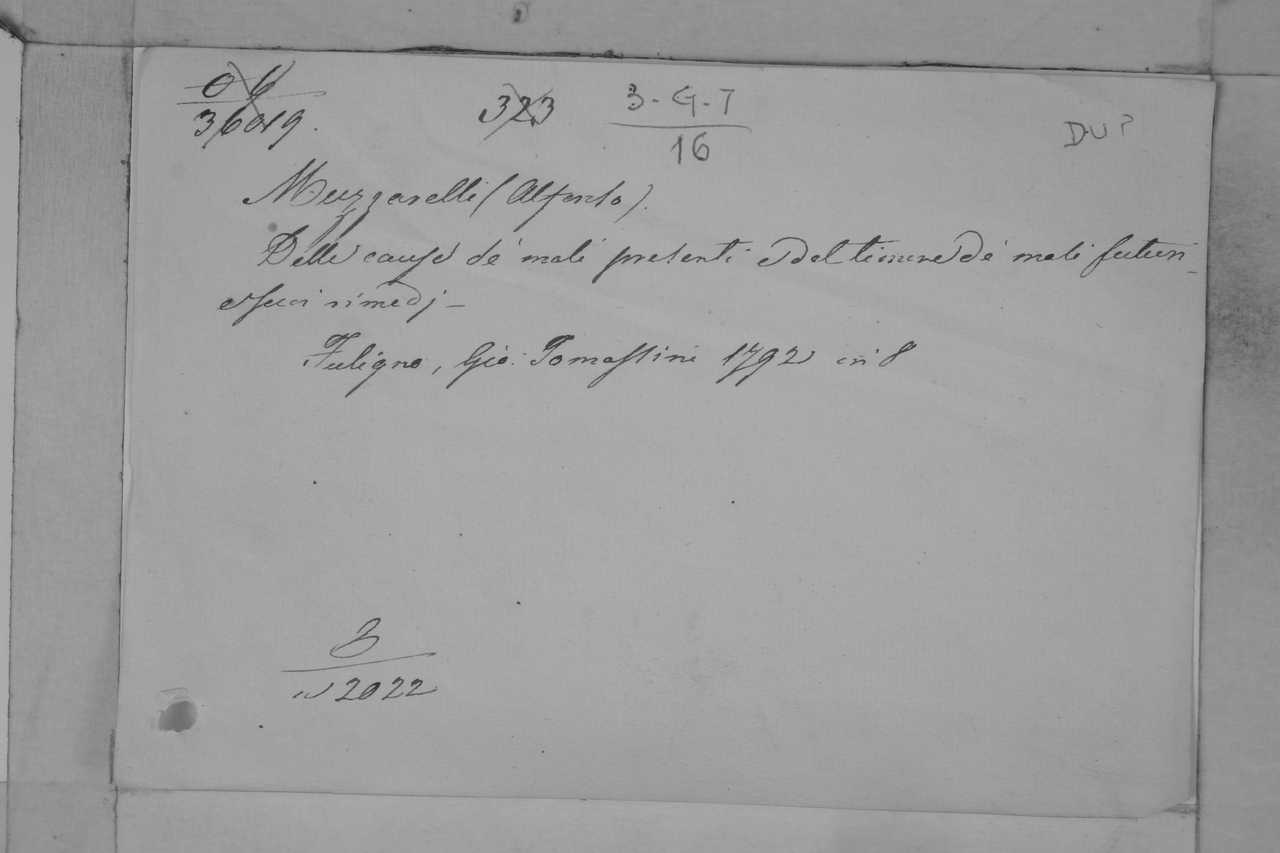 323
3-G-7
16
DUP
36019.
Muzzarelli (Alfonso).
Delle cause de' mali presenti e del timore de' mali futuri
e suoi rimedj -
Fuligno, Gio: Tomassini 1792 in 8
3
2022